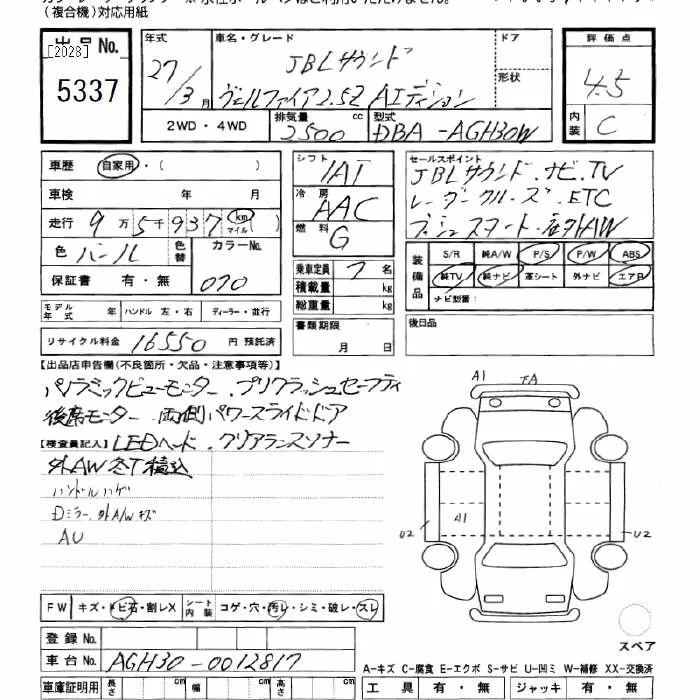 (複合機)対応用紙
出品No. [2028] 5337
年式 27/3月
車名・グレード JBLサウンド
ヴェルファイア2.5Z Aエディション
ドア
形状
評価点 4.5
内装 C
2WD・4WD
排気量 2500 cc
型式 DBA-AGH30W
車歴 自家用・( )
車検 年 月
走行 9万5千937 (km マイル)
色 パール 色替 カラーNo. 070
保証書 有・無
シフト IAT
冷房 AAC
燃料 G
乗車定員 7名
積載量 kg
総重量 kg
セールスポイント
JBLサウンド.ナビ.TV
レーダークルーズ.ETC
プッシュスタート.社外AW
装備品 S/R 純A/W P/S P/W ABS
純TV 純ナビ 革シート 外ナビ エアB
ナビ型番:
モデル年式 年 ハンドル 左・右 ディーラー・並行
リサイクル料金 16550円 預託済
書類期限 月 日
後日品
【出品店申告欄(不良箇所・欠品・注意事項等)】
パノラミックビューモニター.プリクラッシュセーフティ
後席モニター.両側パワースライドドア
【検査員記入】LEDヘッド.クリアランスソナー
外AW冬T積込
ハンドルハゲ
Dミラー.外A/Wキズ
AU
A1 FA
A1
U2 U2
スペア
FW キズ・トビ石・割レX シート内装 コゲ・穴・汚レ・シミ・破レ・スレ
登録No.
車台No. AGH30-0012817
A-キズ C-腐食 E-エクボ S-サビ U-凹ミ W-補修 XX-交換済
車庫証明用 長さ cm 幅 cm 高さ cm
工具 有・無 ジャッキ 有・無